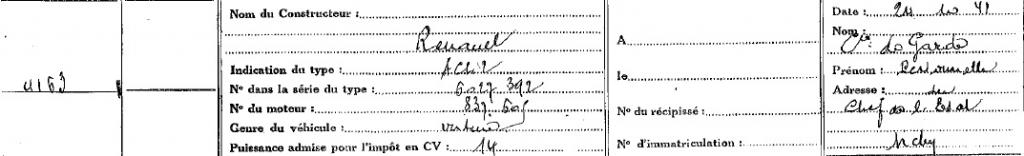 4163
Nom du Constructeur :
Renault
Indication du type : ACR12
N° dans la série du type : 6027.392
N° du moteur : 837.605
Genre du véhicule :
Puissance admise pour l'impôt en CV : 14
A
le
N° du récipissé :
N° d'immatriculation :
Date : 24 41
Nom : de Garde
Prénom : Personnelle
Adresse : du
Chef de l'Etat
Vichy